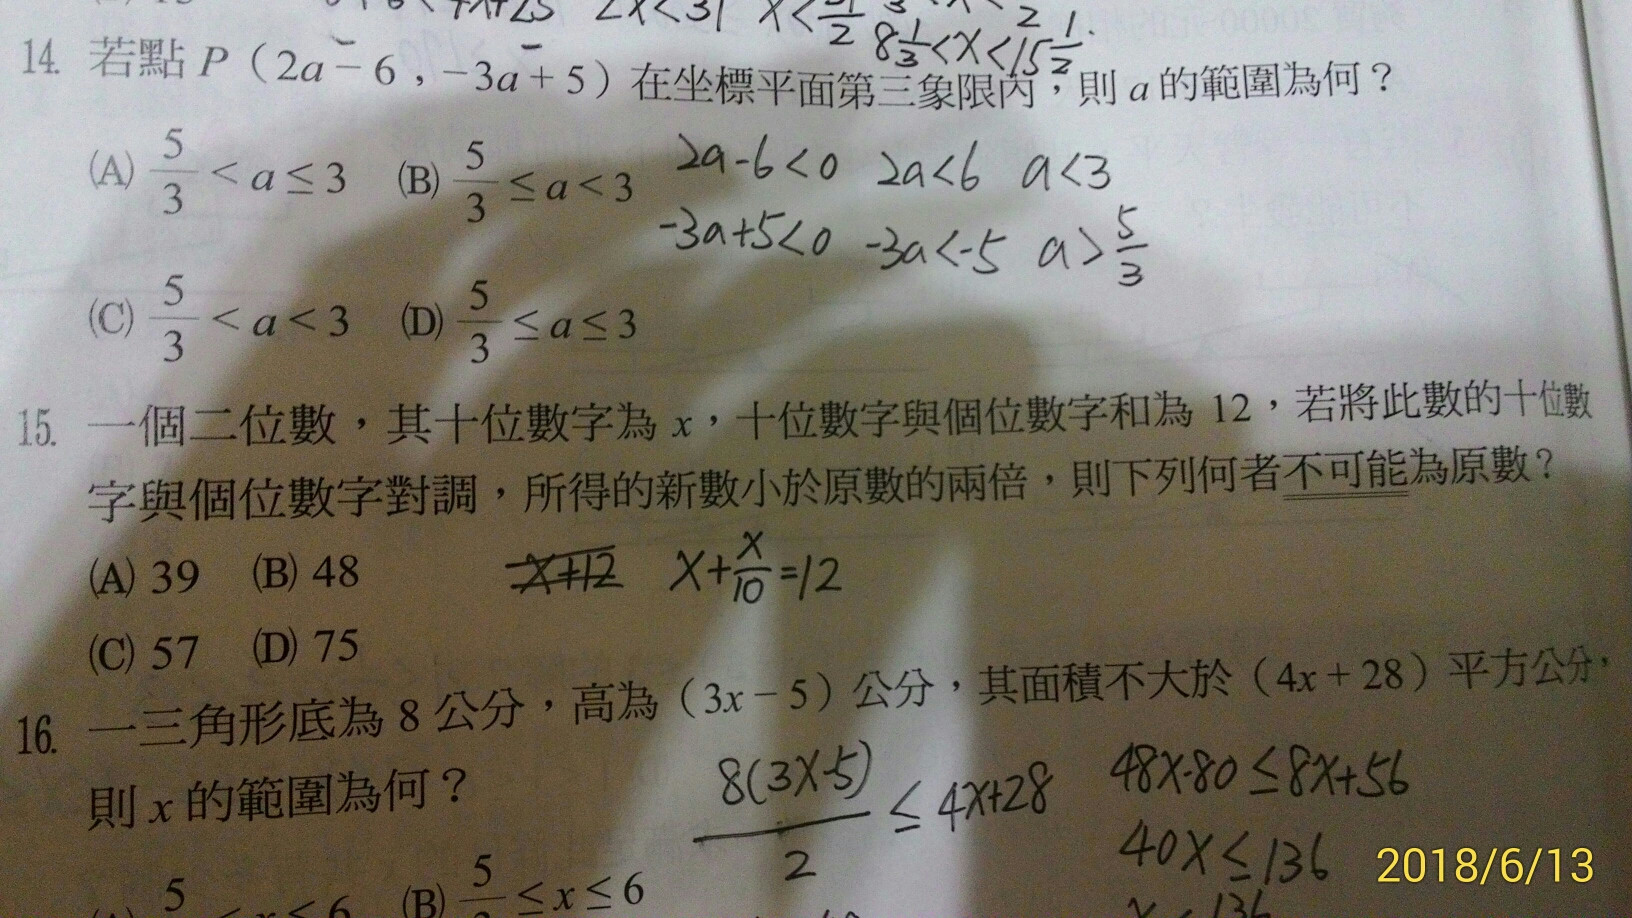 <4x+25 2x<31 x<
8 1/3 < x < 15 1/2
14. 若點 P(2a-6,-3a+5)在坐標平面第三象限內,則 a 的範圍為何?
(A) 5/3 < a ≤ 3 (B) 5/3 ≤ a < 3 2a-6<0 2a<6 a<3
-3a+5<0 -3a<-5 a> 5/3
(C) 5/3 < a < 3 (D) 5/3 ≤ a ≤ 3
15. 一個二位數,其十位數字為 x,十位數字與個位數字和為 12,若將此數的十位數
字與個位數字對調,所得的新數小於原數的兩倍,則下列何者不可能為原數?
(A) 39 (B) 48 x+12 x+x/10=12
(C) 57 (D) 75
16. 一三角形底為 8 公分,高為(3x-5)公分,其面積不大於(4x+28)平方公分,
則 x 的範圍為何? 8(3x-5)/2 ≤ 4x+28 48x-80≤8x+56
40x≤136
2018/6/13
(B) 5 ≤ x ≤ 6